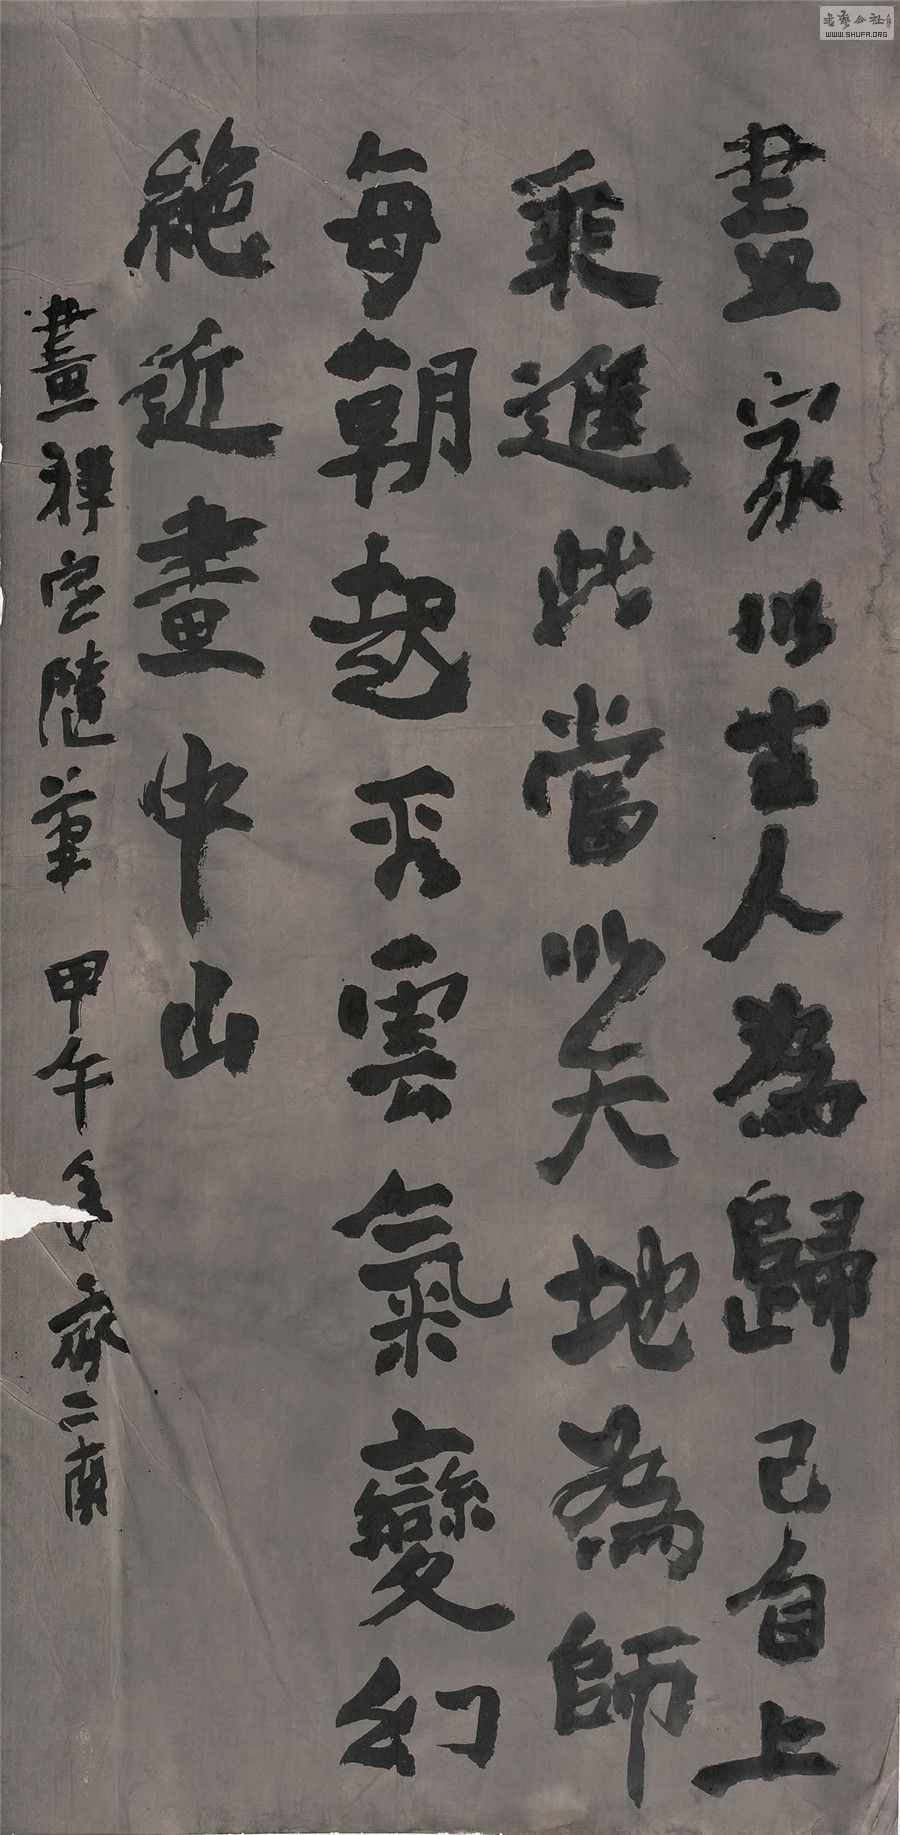 畫家以古人為歸己自上
乘進此當以天地為師
每朝起看雲氣變幻
絕近畫中山
畫禪室隨筆 甲午 齊二南
書藝公社
WWW.SHUFA.ORG